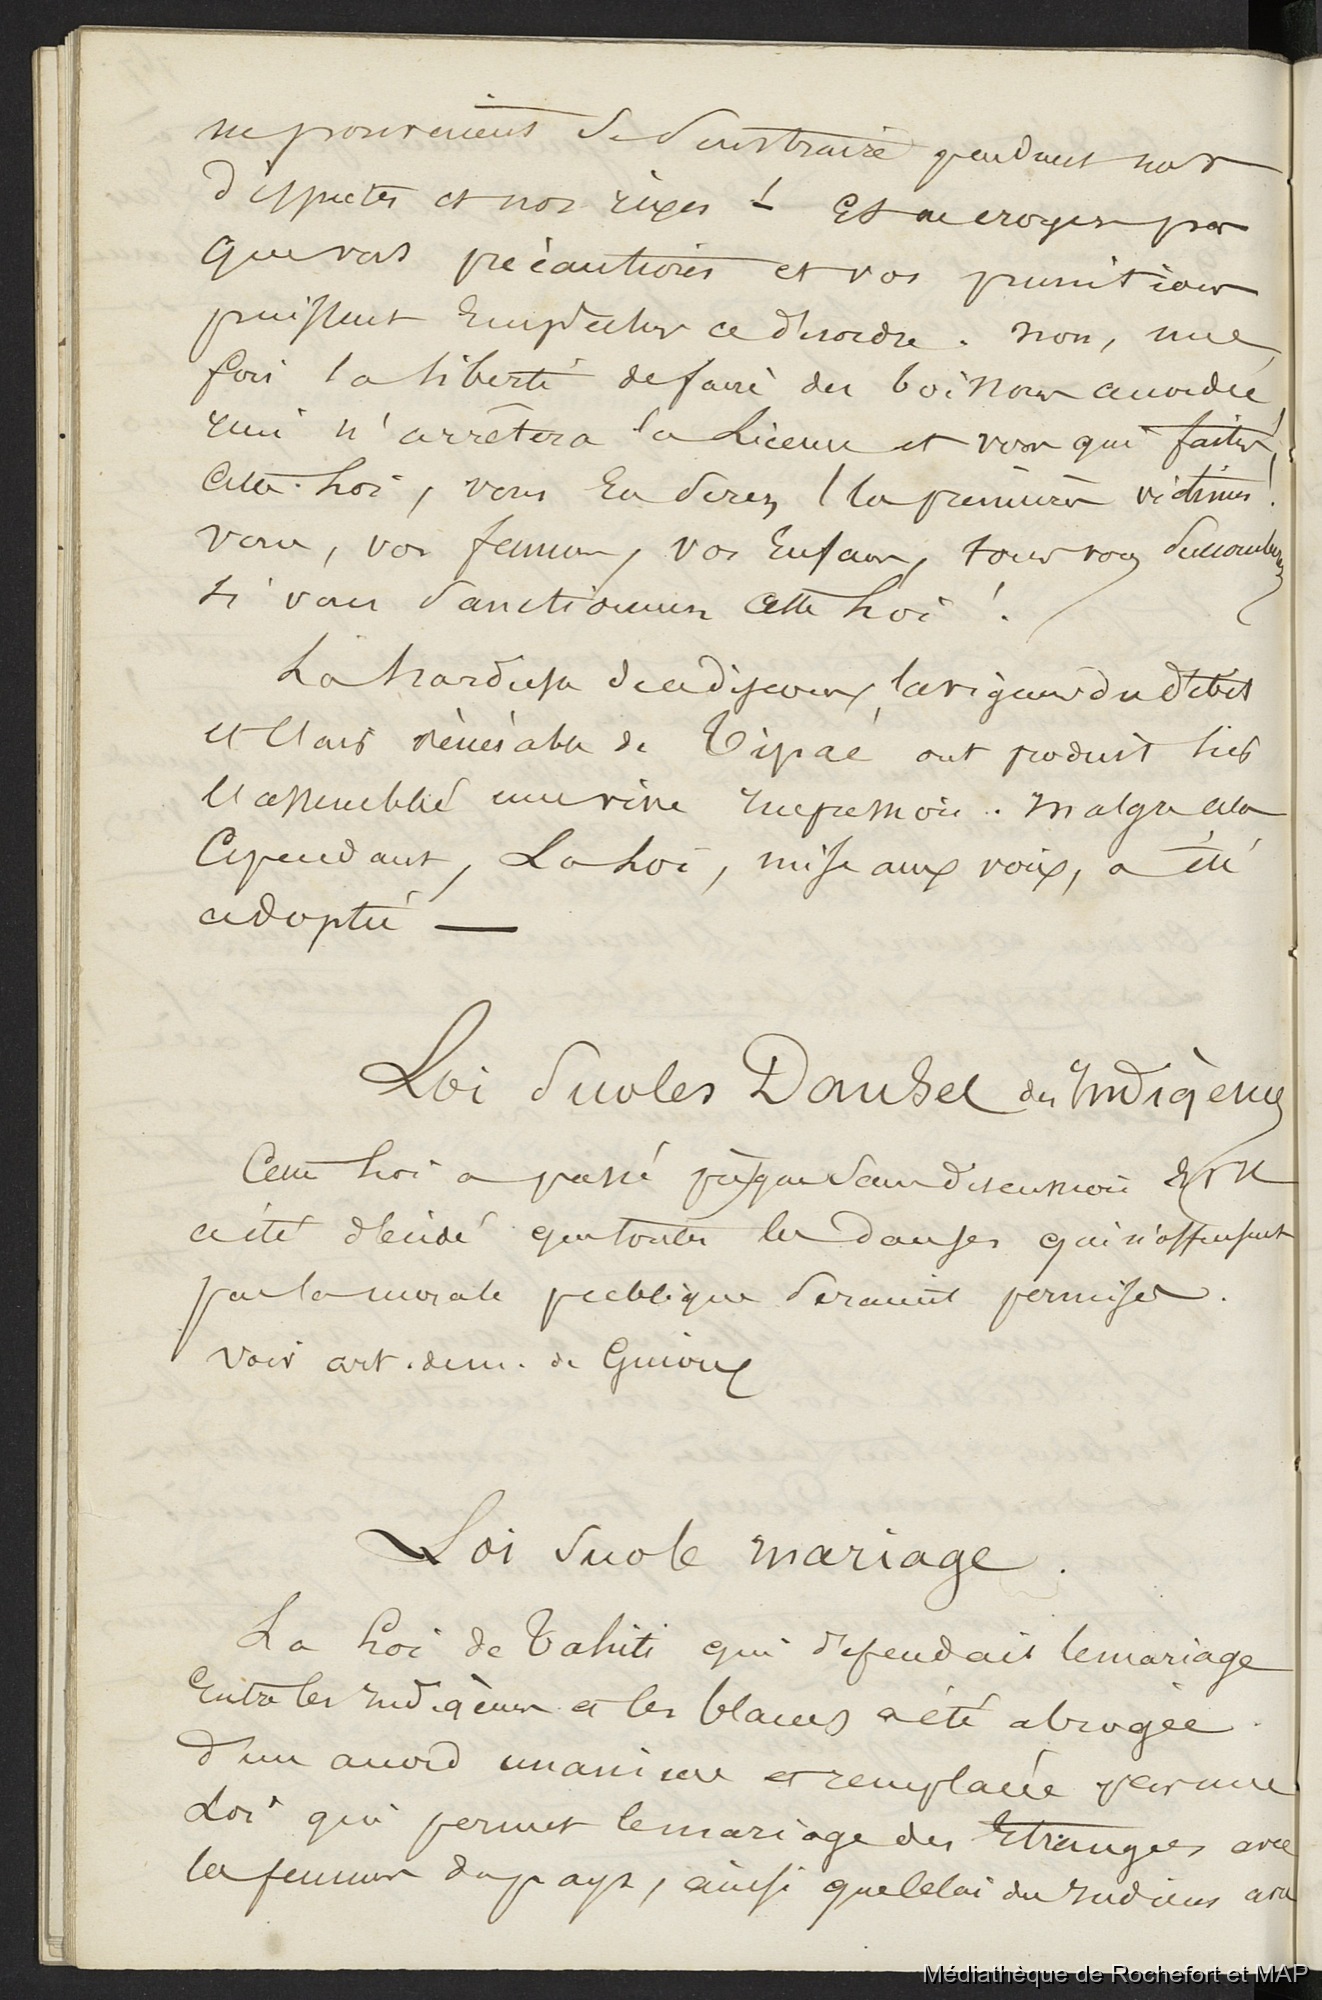 ne pouvaient se soustraire pendant nos
disputes et nos rixes ! Et ne croyez pas
que vos précautions et vos punitions
puissent empêcher ce désordre. Non, une
fois la liberté de faire des boissons accordée
rien n'arrêtera la licence et vous qui faites
cette Loi, vous en serez les premières victimes !
vous, vos femmes, vos Enfans, tous vous succomberez
si vous sanctionnez cette Loi !
La hardiesse de ce discours, la vigueur du débit
et l'air vénérable de Tipaé ont produit sur
l'assemblée une vive impression. Malgré cela
Cependant, La Loi, mise aux voix, a été
adoptée —
Loi sur les Danses des Indigènes
Cette Loi a passé presque sans discussion et il
a été décidé que toutes les danses qui n'offensent
pas la morale publique seraient permises.
Voir art. de
Loi sur le mariage.
La Loi de Tahiti qui défendait le mariage
entre les indigènes et les blancs a été abrogée
d'un accord unanime et remplacée par une
Loi qui permet le mariage des Etrangers avec
les femmes du pays, ainsi que celui des indiens avec
Médiathèque de Rochefort et MAP